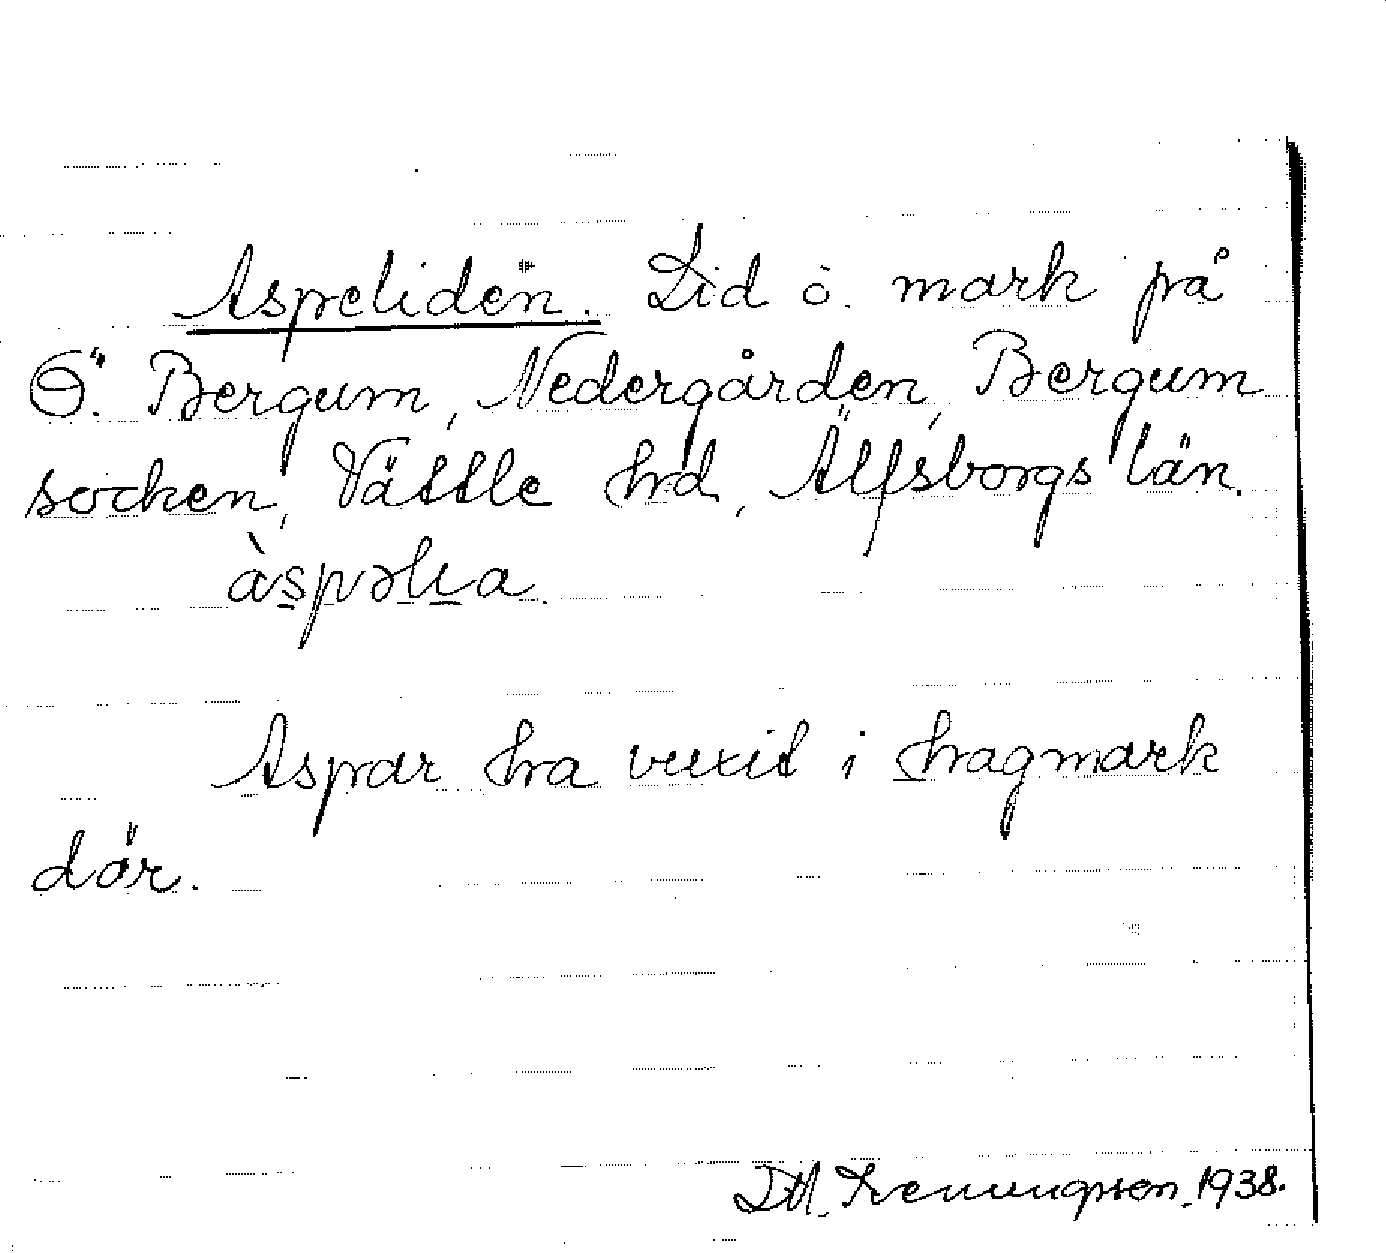 Aspeliden. Lid ö. mark på
Ö. Bergum, Nedergården, Bergum
socken, Vättle hrd, Älfsborgs län.
àspəlıa.
Aspar ha vuxit i hagmark
där.
1938.